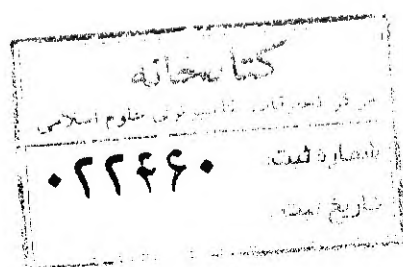 کتابخانه
مرکز تحقیقات کامپیوتری علوم اسلامی
شماره ثبت:
۰۲۲۴۶۰
تاریخ ثبت: